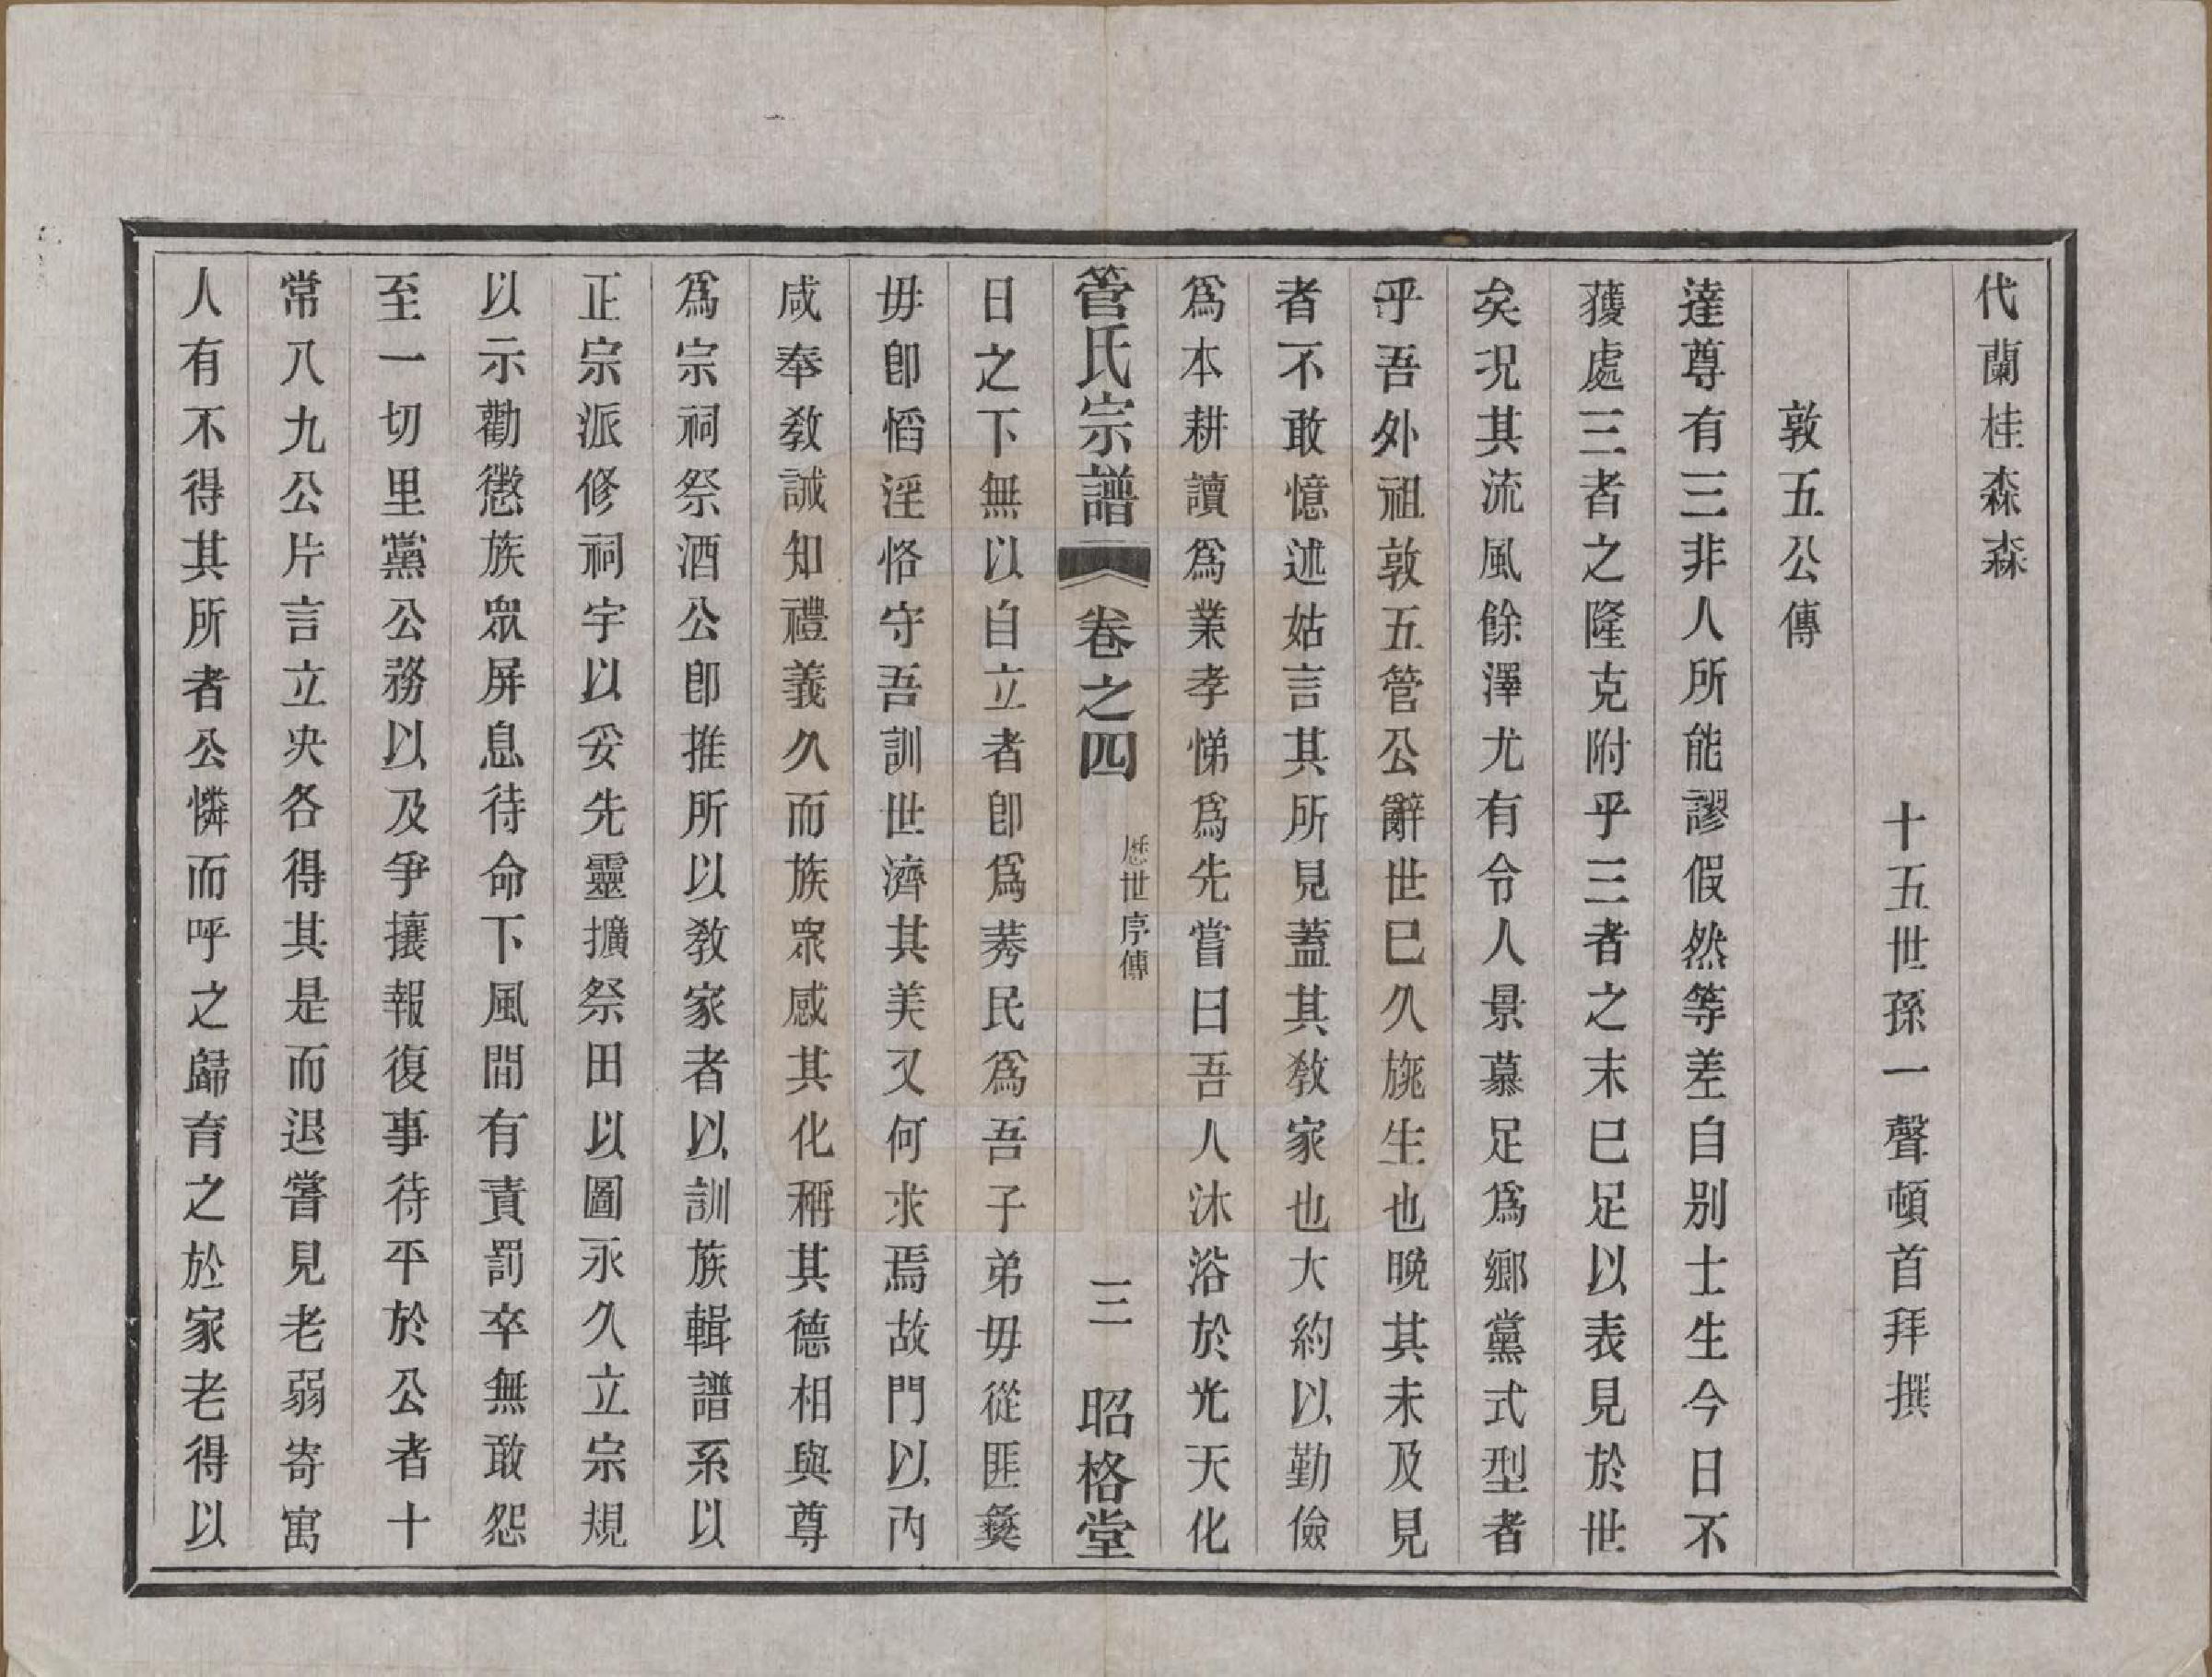 代蘭桂森森
十五世孫一聲頓首拜撰
敦五公傳
達尊有三非人所能謬假然等差自别士生今日不
獲處三者之隆克附乎三者之末已足以表見於世
矣況其流風餘澤尤有令人景慕足爲鄉黨式型者
乎吾外祖敦五管公辭世已久旐生也晚其未及見
者不敢憶述姑言其所見蓋其敎家也大約以勤儉
爲本耕讀爲業孝悌爲先嘗曰吾人沐浴於光天化
管氏宗譜 卷之四 歷世序傳 三 昭格堂
日之下無以自立者卽爲莠民爲吾子弟毋從匪彝
毋卽慆淫恪守吾訓世濟其美又何求焉故門以內
咸奉敎誡知禮義久而族衆感其化稱其德相與尊
爲宗祠祭酒公卽推所以敎家者以訓族輯譜系以
正宗派修祠宇以妥先靈擴祭田以圖永久立宗規
以示勸懲族眾屏息待命下風間有責罰卒無敢怨
至一切里黨公務以及爭攘報復事待平於公者十
常八九公片言立决各得其是而退嘗見老弱寄寓
人有不得其所者公憐而呼之歸育之於家老得以